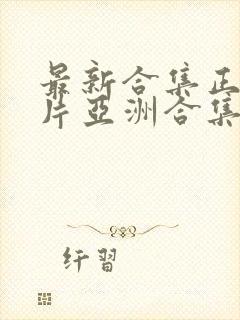 最新合集正
片亞洲合集
纤習